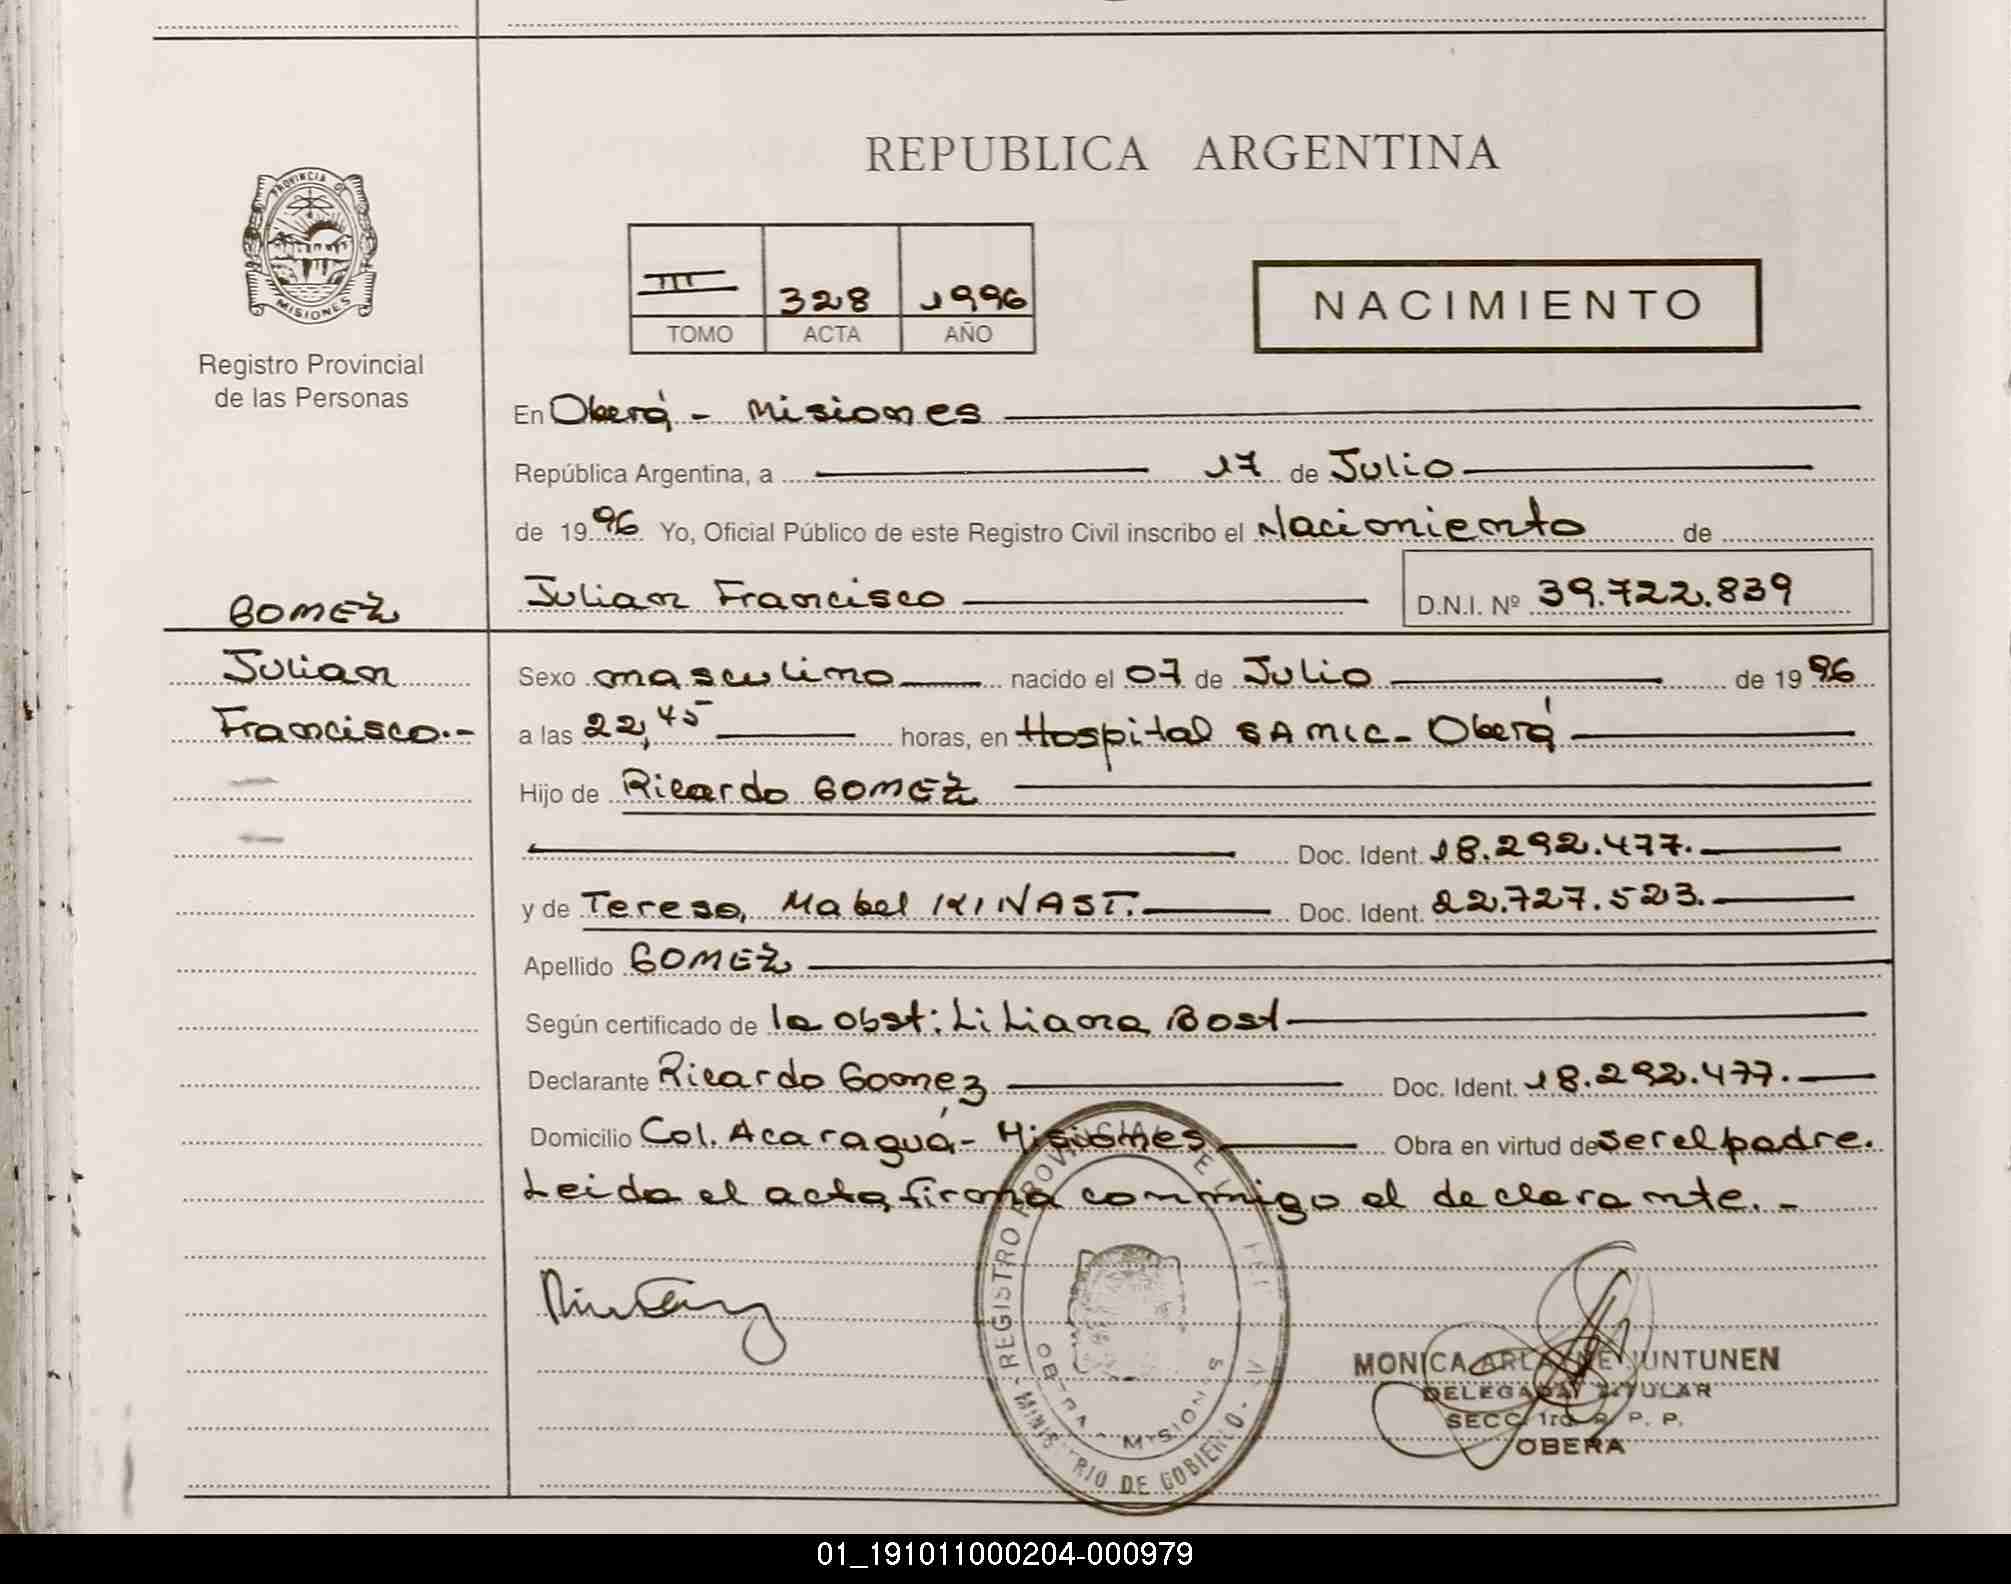 REPUBLICA ARGENTINA
PROVINCIA DE
MISIONES
Registro Provincial
de las Personas
III 328 1996
TOMO ACTA AÑO
NACIMIENTO
En Oberá - Misiones
República Argentina, a 17 de Julio
de 1996 Yo, Oficial Público de este Registro Civil inscribo el Nacimiento de
Julian Francisco D.N.I. Nº 39.722.839
GOMEZ
Julian
Francisco.-
Sexo masculino nacido el 07 de Julio de 1996
a las 22,45 horas, en Hospital SAMIC - Oberá
Hijo de Ricardo GOMEZ
Doc. Ident. 18.292.477.
y de Teresa Mabel KINAST. Doc. Ident. 22.727.523.
Apellido GOMEZ
Según certificado de la obst: Liliana Bost
Declarante Ricardo Gomez Doc. Ident. 18.292.477.
Domicilio Col. Acaraguá - Misiones Obra en virtud de ser el padre.
Leida el acta, firma conmigo el declarante. -
REGISTRO PROVINCIAL DE L
OBERA - MISIONES
MINISTERIO DE GOBIERNO -
MONICA ARLAINE JUNTUNEN
DELEGADA TITULAR
SECC. 1ra R. P. P.
OBERA
01_191011000204-000979